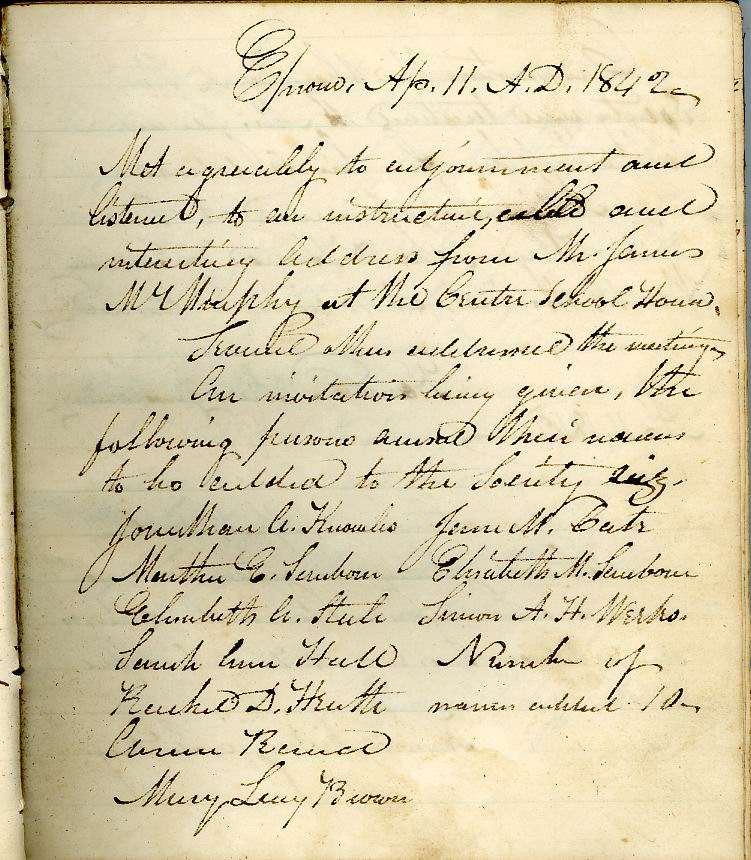 Epsom, Ap. 11. A.D. 1842
Met agreeably to adjournment and
listened, to an instructive, and
interesting address from Mr. James
McMurphy at the Centre School House.
Several others addressed the meeting
An invitation being given, the
following persons caused their names
to be added to the Society viz.
Jonathan A. Knowles Jane M. Cate
Martha E. Sanborn Elizabeth M. Sanborn
Elisabeth A. Simon A. H. Weeks.
Sarah Ann Hall Number of
Rachel D. Heath names added 10
Mary Lucy Brown